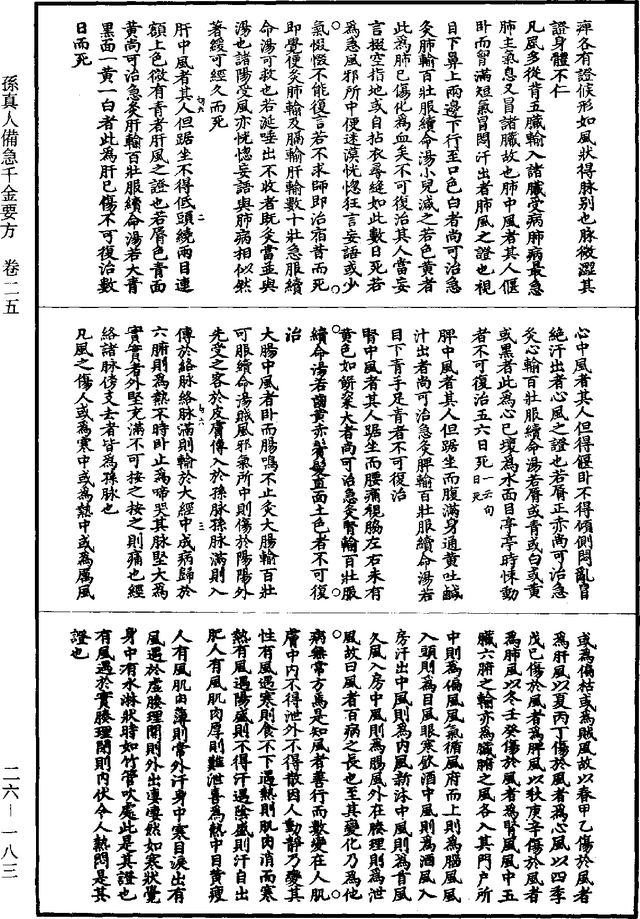 痺各有證候形如風狀得脉別也脉微澀其
證身體不仁
凡風多從背五臟輸入諸臟受病肺病最急
肺主氣息又冒諸臟故也肺中風者其人偃
卧而胷滿短氣冒悶汗出者肺風之證也視
目下鼻上兩邊下行至口色白者尚可治急
灸肺輸百壯服續命湯小兒減之若色黃者
此為肺已傷化為血矣不可復治其人當妄
言掇空指地或自拈衣尋縫如此數日死若
為急風邪所中便迷漠恍惚狂言妄語或少
氣惙惙不能復言若不求師即治宿昔而死
即覺便灸肺輸及膈輸肝輸數十壯急服續
命湯可救也若涎唾出不收者既灸當並與
湯也諸陽受風亦恍惚妄語與肺病相似然
著緩可經久而死
肝中風者其人但踞坐不得低頭繞兩目連
額上色微有青者肝風之證也若脣色青面
黃尚可治急灸肝輸百壯服續命湯若大青
黑面一黃一白者此為肝已傷不可復治數
日而死
心中風者其人但得偃卧不得傾側悶亂冒
絕汗出者心風之證也若脣正赤尚可治急
灸心輸百壯服續命湯若脣或青或白或黃
或黑者此為心已壞為水面目亭亭時悚動
者不可復治五六日死一云旬日死
脾中風者其人但踞坐而腹滿身通黃吐鹹
汁出者尚可治急灸脾輸百壯服續命湯若
目下青手足青者不可復治
腎中風者其人踞坐而腰痛視脇左右未有
黃色如餅粢大者尚可治急灸腎輸百壯服
續命湯若齒黃赤鬢髮直面土色者不可復
治
大腸中風者卧而腸鳴不止灸大腸輸百壯
可服續命湯賊風邪氣所中則傷於陽陽外
先受之客於皮膚傳入於孫脉孫脉滿則入
傳於絡脉絡脉滿則輸於大經中成病歸於
六腑則為熱不時卧止為啼哭其脉堅大為
實實者外堅充滿不可按之按之則痛也經
絡諸脉傍支去者皆為孫脉也
凡風之傷人或為寒中或為熱中或為厲風
或為偏枯或為賊風故以春甲乙傷於風者
為肝風以夏丙丁傷於風者為心風以四季
戊己傷於風者為脾風以秋庚辛傷於風者
為肺風以冬壬癸傷於風者為腎風風中五
臟六腑之輸亦為臟腑之風各入其門戶所
中則為偏風風氣循風府而上則為腦風風
入頭則為目風眼寒飲酒中風則為酒風入
房汗出中風則為內風新沐中風則為首風
久風入房中風則為腸風外在腠理則為泄
風故曰風者百病之長也至其變化乃為他
病無常方焉是知風者善行而數變在人肌
膚中內不得泄外不得散因人動靜乃變其
性有風遇寒則食不下遇熱則肌肉消而寒
熱有風遇陽盛則不得汗遇陰盛則汗自出
肥人有風肌肉厚則難泄喜為熱中目黃瘦
人有風肌肉薄則常外汗身中寒目淚出有
風遇於虛腠理開則外出凄凄然如寒狀覺
身中有水淋狀時如竹管吹處此是其證也
有風遇於實腠理閉則內伏令人熱悶是其
證也
孫真人備急千金要方 卷二五
二六—一八三